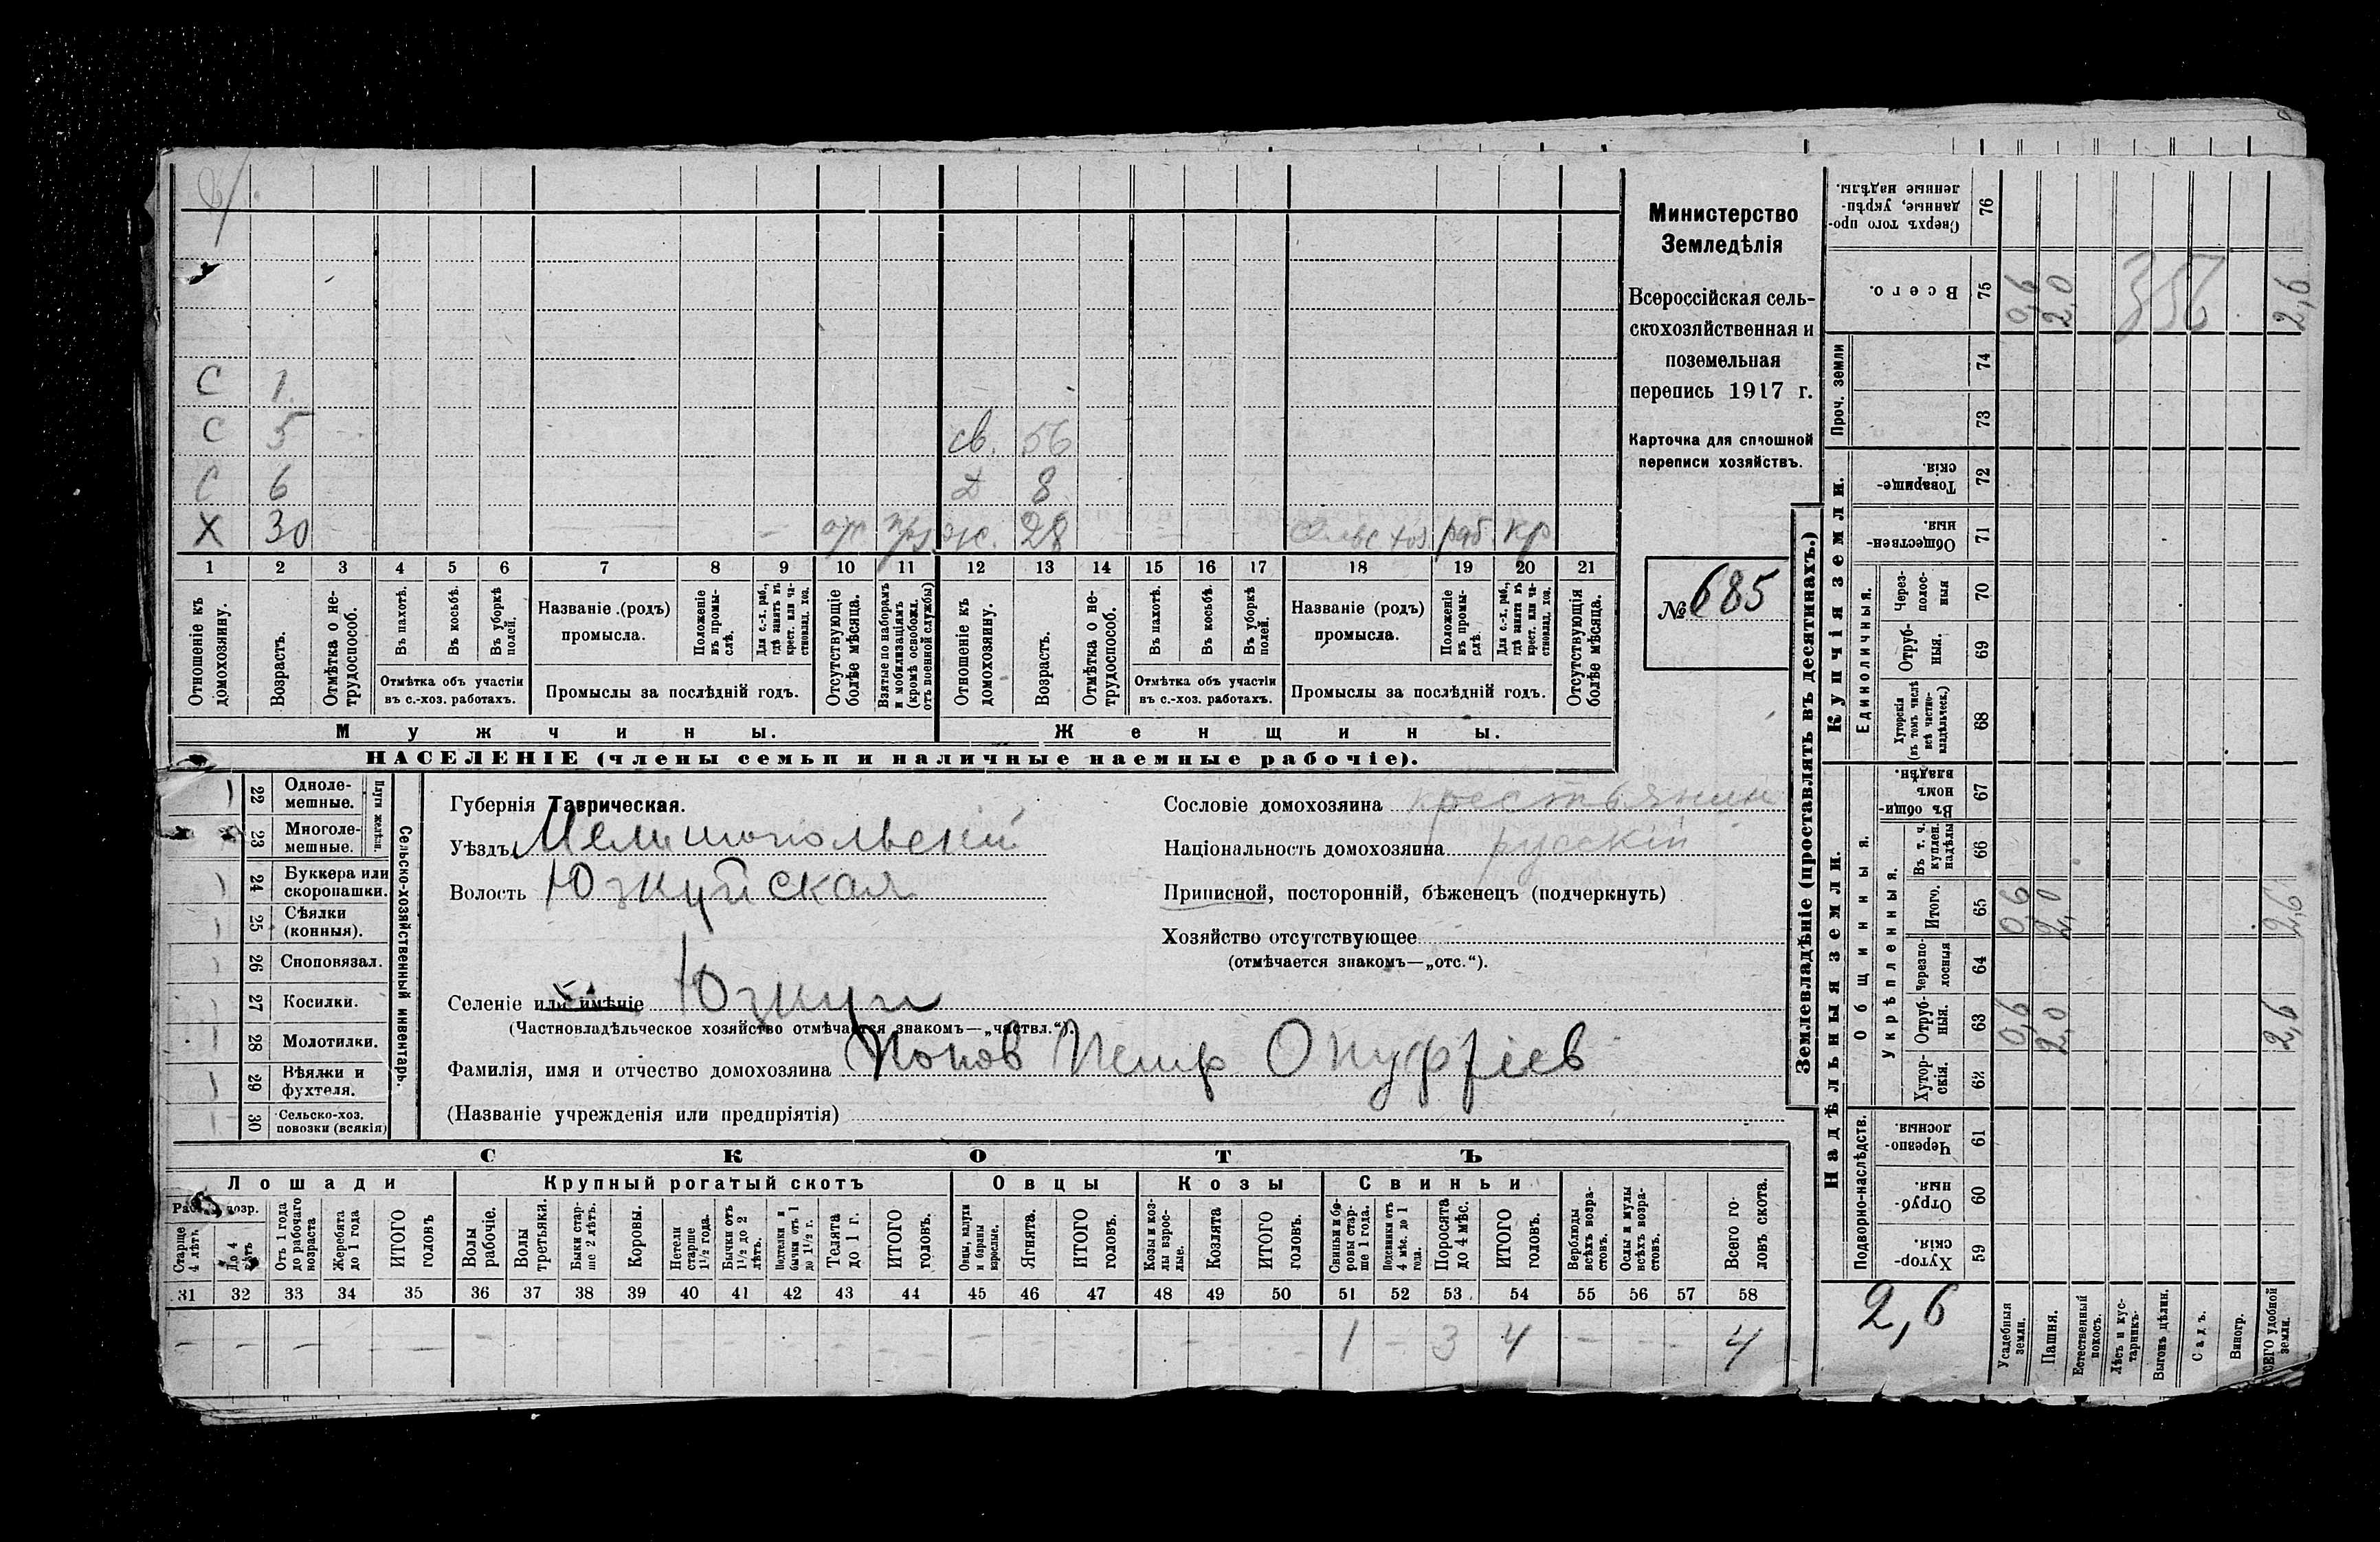 С 1.
С 5 св. 56
С 6 д 8
Х 30 — — отс ж. 28 — — раб. кр
1 2 3 4 5 6 7 8 9 10 11 12 13 14 15 16 17 18 19 20 21
Отношеніе къ домохозяину.
Возрастъ.
Отмѣтка о нетрудоспособ.
Въ пахотѣ.
Въ косьбѣ.
Въ уборкѣ полей.
Отмѣтка объ участіи
въ с.-хоз. работахъ.
Названіе (родъ)
промысла.
Положеніе въ промыслѣ.
Для с.-х. раб., гдѣ занятъ въ крест. или частновлад. хоз.
Промыслы за послѣдній годъ.
Отсутствующіе болѣе мѣсяца.
Взятые по наборамъ и мобилизаціямъ (кромѣ освобожд. отъ военной службы)
Отношеніе къ домохозяину.
Возрастъ.
Отмѣтка о нетрудоспособ.
Въ пахотѣ.
Въ косьбѣ.
Въ уборкѣ полей.
Отмѣтка объ участіи
въ с.-хоз. работахъ.
Названіе (родъ)
промысла.
Положеніе въ промыслѣ.
Для с.-х. раб., гдѣ занята въ крест. или частновлад. хоз.
Промыслы за послѣдній годъ.
Отсутствующія болѣе мѣсяца.
Мужчины. Женщины.
НАСЕЛЕНІЕ (члены семьи и наличные наемные рабочіе).
Министерство
Земледѣлія
Всероссійская сель-
скохозяйственная и
поземельная
перепись 1917 г.
Карточка для сплошной
переписи хозяйствъ.
№ 685
Сельско-хозяйственный инвентарь.
Плуги желѣзн.
22 Одноле-
мешные.
23 Многоле-
мешные.
24 Буккера или
скоропашки.
25 Сѣялки
(конныя).
26 Сноповязал.
27 Косилки.
28 Молотилки.
29 Вѣялки и
фухтеля.
30 Сельско-хоз.
повозки (всякія)
Губернія Таврическая.
Уѣздъ Мелитопольский
Волость Юзкуйская
Селеніе или имѣніе Юзкуи
(Частновладѣльческое хозяйство отмѣчается знакомъ—„частвл.“).
Фамилія, имя и отчество домохозяина Попов Петр Онуфріев
(Названіе учрежденія или предпріятія)
Сословіе домохозяина крестьянин
Національность домохозяина русскій
Приписной, посторонній, бѣженецъ (подчеркнуть)
Хозяйство отсутствующее
(отмѣчается знакомъ—„отс.“).
СКОТЪ
Лошади Крупный рогатый скотъ Овцы Козы Свиньи
Старше 4 лѣтъ
До 4 лѣтъ
Отъ 1 года до рабочаго возраста
Жеребята до 1 года
ИТОГО головъ
Волы рабочіе.
Волы третьяки.
Быки старше 2 лѣтъ.
Коровы.
Нетели старше 1½ года.
Бычки отъ 1½ до 2 лѣтъ.
Подтелки и бычки отъ 1 до 1½ г.
Телята до 1 г.
ИТОГО головъ.
Овцы, валухи и бараны взрослые.
Ягнята.
ИТОГО головъ.
Козы и козлы взрослые.
Козлята
ИТОГО головъ.
Свиньи и боровы старше 1 года.
Подсвинки отъ 4 мѣс. до 1 года.
Поросята до 4 мѣс.
ИТОГО головъ.
Верблюды всѣхъ возрастовъ.
Ослы и мулы всѣхъ возрастовъ.
Всего головъ скота.
31 32 33 34 35 36 37 38 39 40 41 42 43 44 45 46 47 48 49 50 51 52 53 54 55 56 57 58
1 — 3 4 — — — 4
Землевладѣніе (проставлять въ десятинахъ.)
Купчія земли.
Надѣльныя земли.
Сверхъ того проданные, укрѣпленные надѣлы. 76
Всего. 75 0,6 2,0 2,6
356
Проч. земли 74
73
Товарищескія. 72
Общественныя. 71
Единоличныя.
Черезполосныя 70
Отрубныя. 69
Хуторскія (въ томъ числѣ всѣ частновладѣльческ.) 68
Общинныя.
Въ общинномъ владѣн. 67
Укрѣпленныя.
Въ т. ч. куплен. надѣлы 66
Итого. 65 0,6 2,0 2,6
Черезполосныя 64
Отрубныя. 63 0,6 2,0 2,6
Хуторскія. 62
Подворно-наслѣдств.
Черезполосныя. 61
Отрубныя. 60
Хуторскія. 59
2,6
Усадебныя земли.
Пашня.
Естественный покосъ.
Лѣсъ и кустарникъ.
Выгонъ цѣлин.
Садъ.
Виногр.
ВСЕГО удобной земли.